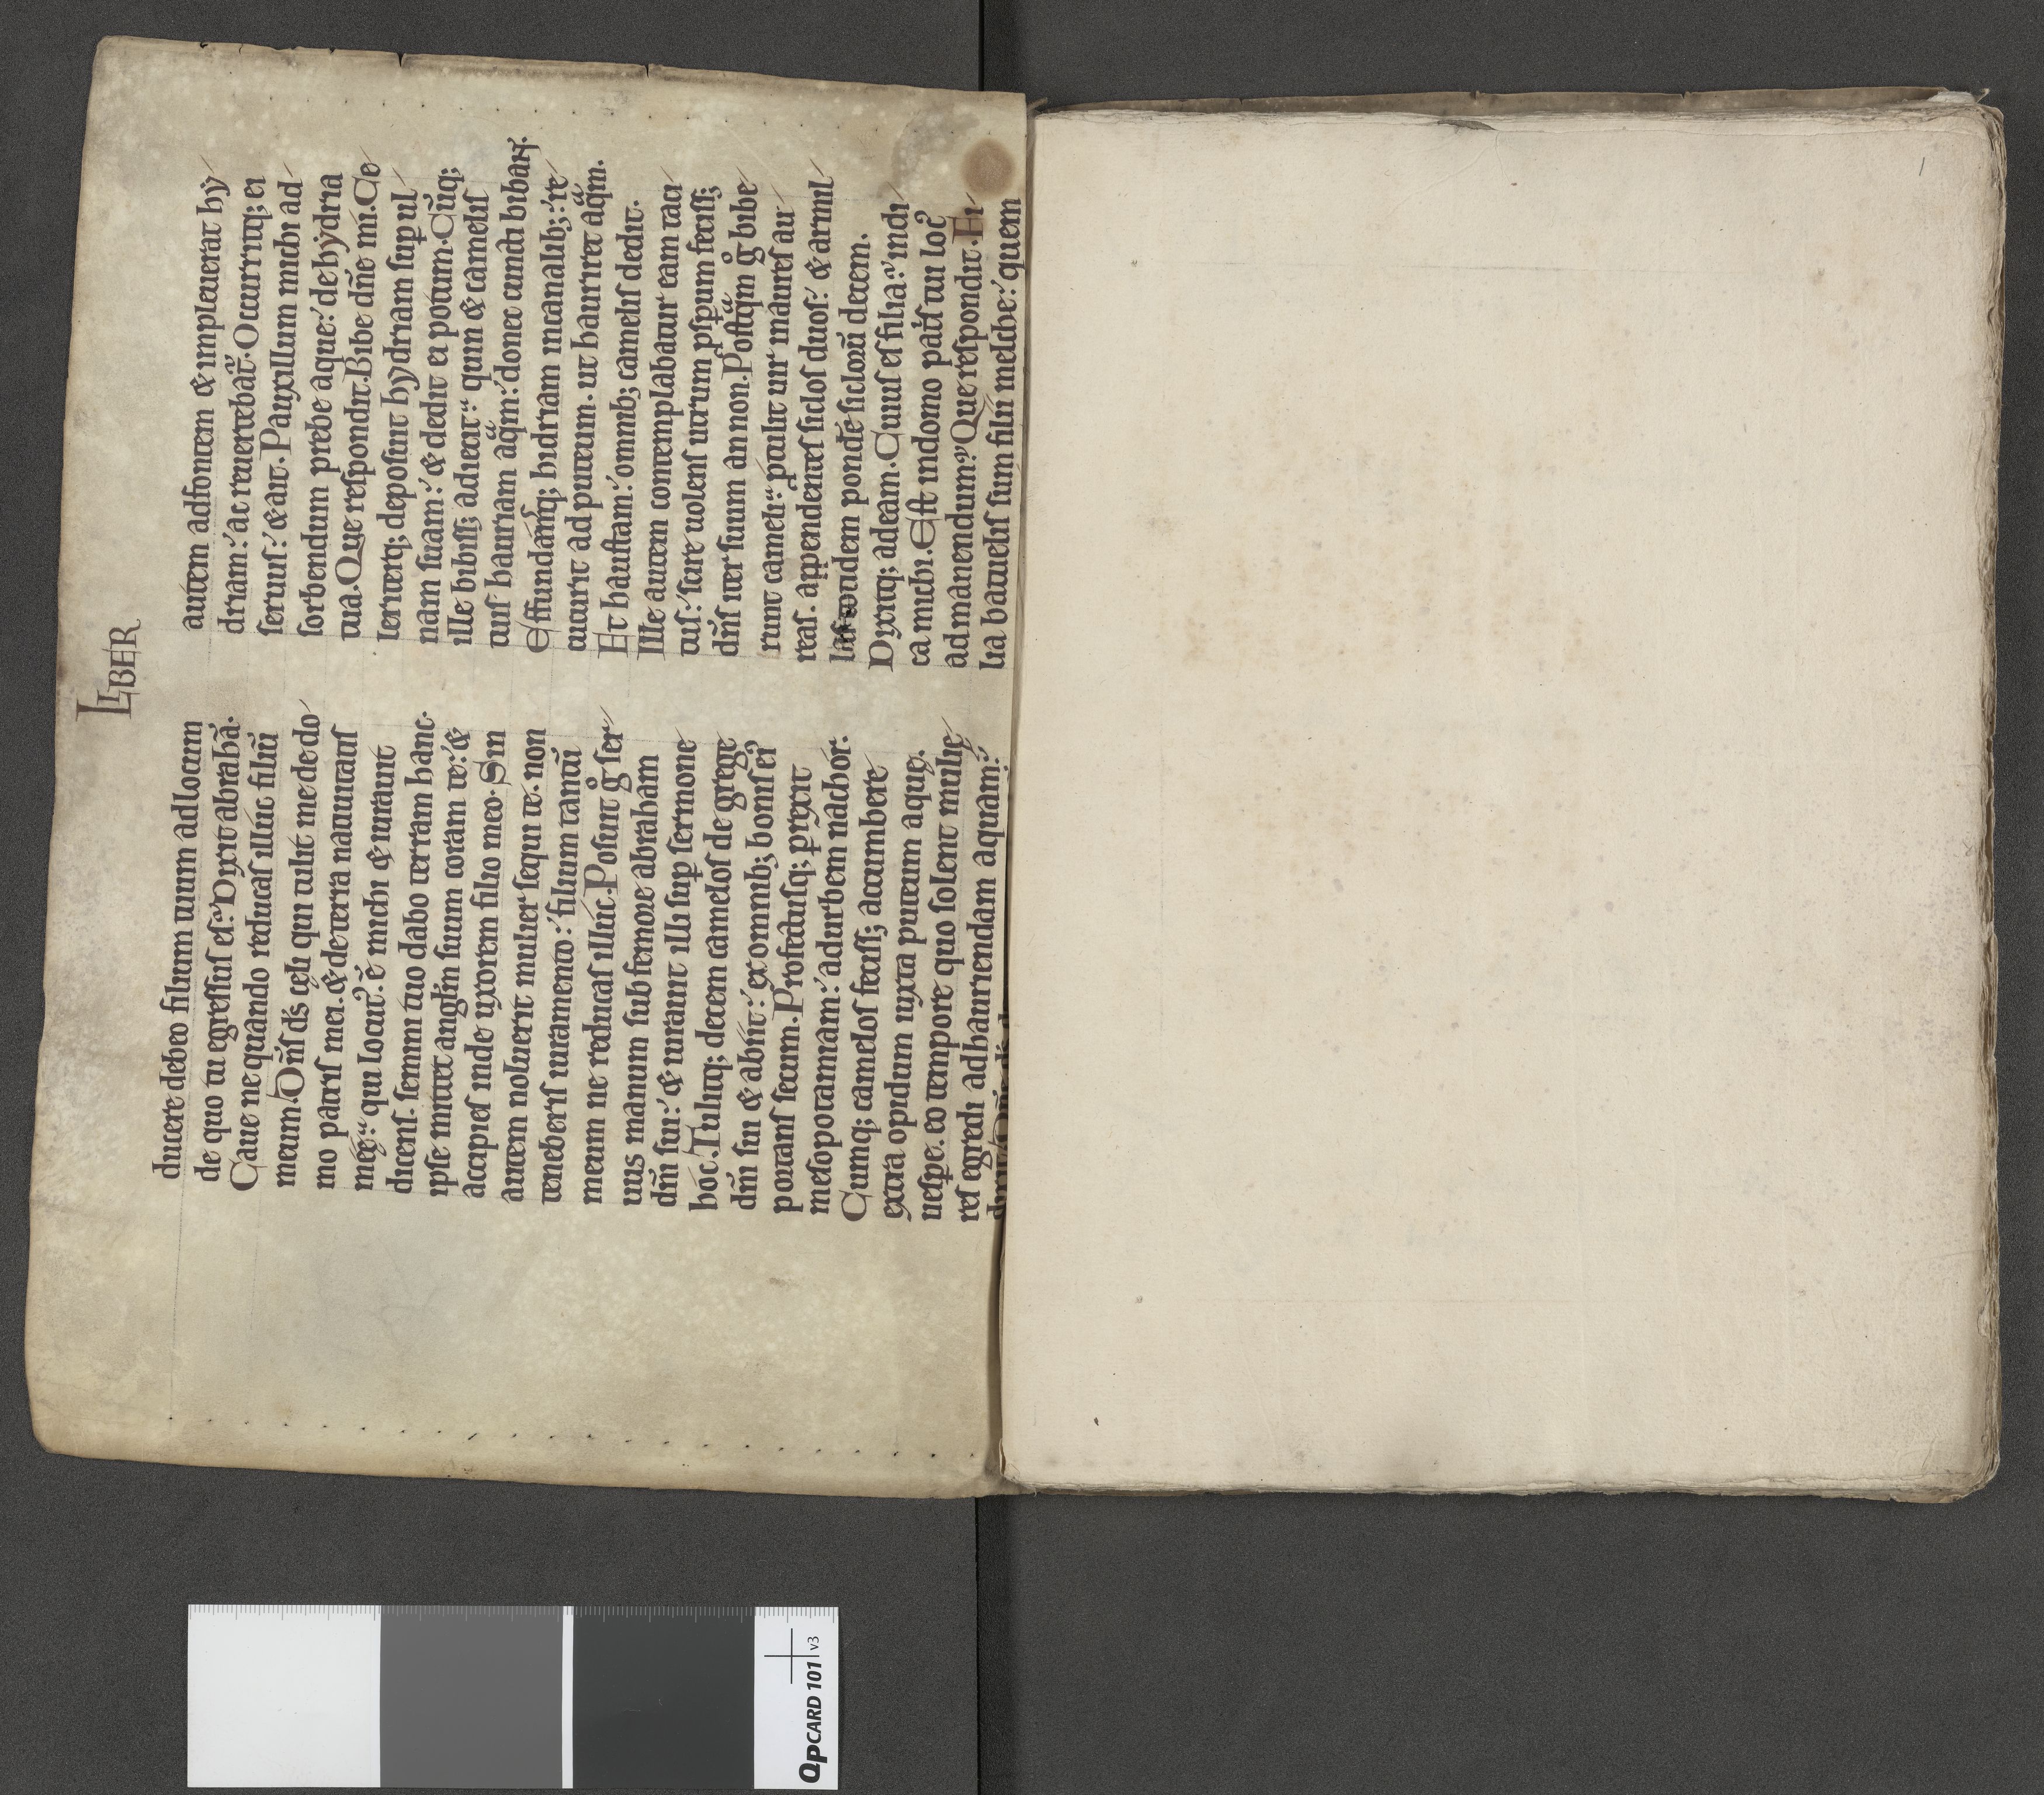 LIBER
ducere debeo filium tuum ad locum
de quo tu egressus es? Dixit abrahā.
Caue ne quando reducas illuc filiū
meum. Dn̄s ds̄ cęli qui tulit me de do
mo patris mei. & de terra natiuitatis
meę: qui locut᷒ ē michi & iurauit
dicens. semini tuo dabo terram hanc.
ipse mittet angl̄m suum coram te: &
accipies inde uxorem filio meo. Sin
autem noluerit mulier sequi te. non
teneberis iuramento: filium tantū
meum ne reducas illuc. Posuit gͦ ser
uus manum sub femore abraham
dn̄i sui: & iurauit illi suꝑ sermone
hoc. Tulitq; decem camelos de grege
dn̄i sui & abiit: ex omnib; bonis ei᷒
portans secum. Profectusq; ꝑrexit
mesopotamiam: ad urbem nachor.
Cumq; camelos feciss; accumbere
extra opidum iuxta puteum aquę.
uesꝑe. eo tempore quo solent mulie
res egredi ad hauriendam aquam:
autem ad fontem & impleuerat hy
driam: ac reuertebat᷑. Occurritq; ei
seruus: & ait. Pauxillum michi ad
sorbendum prebe aque: de hydria
tua. Que respondit. Bibe dn̄e mi. Ce
leriterq; deposuit hydriam suꝑ ul
nam suam: & dedit ei potum. Cūq;
ille bibiss; adiecit: quin & camelis
tuis hauriam aqͣm: donec cuncti bibant.
Effundensq; hidriam in canalib;: re
cucurrit ad puteum. ut hauriret aqͣm.
Et haustam: omnib; camelis dedit.
Ille autem contemplabatur eam taci
tus: scire uolens utrum ꝓsꝑum feciss;
dn̄s iter suum an non. Postqͣm gͦ bibe
runt cameli: ꝓtulit uir inaures au
reas. appendentes siclos duos: & armil
las totidem pondē siclorū decem.
Dixitq; ad eam. Cuius es filia? indi
ca michi. Est in domo pat̄s tui loc᷒
ad manendum? Que respondit. Fi
lia batuelis sum filii melche: quem
1
QPCARD 101 v3